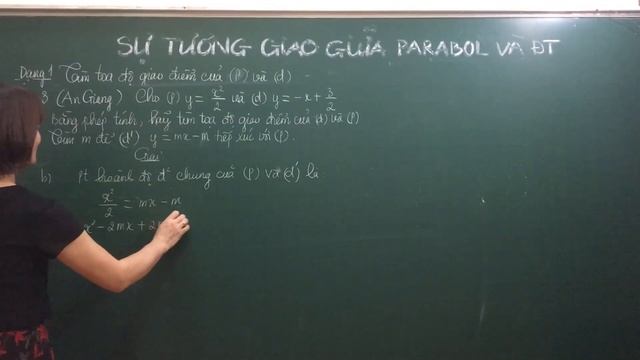 SỰ TƯƠNG GIAO GIỮA PARABOL VÀ ĐT
Dạng 1 Tìm toạ độ giao điểm của (P) và (d)
3 (An Giang) Cho (P) y = x²/2 và (d) y = -x + 3/2
bằng phép tính, hãy tìm toạ độ giao điểm của (d) và (P)
Tìm m để (d') y = mx - m tiếp xúc với (P).
Giải
b) Pt hoành độ đ² chung của (P) và (d') là
x²/2 = mx - m
x² - 2mx + 2